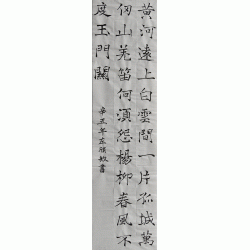 黄河遠上白雲間一片孤城萬
仞山羌笛何須怨楊柳春風不
度玉門關
辛丑年
書